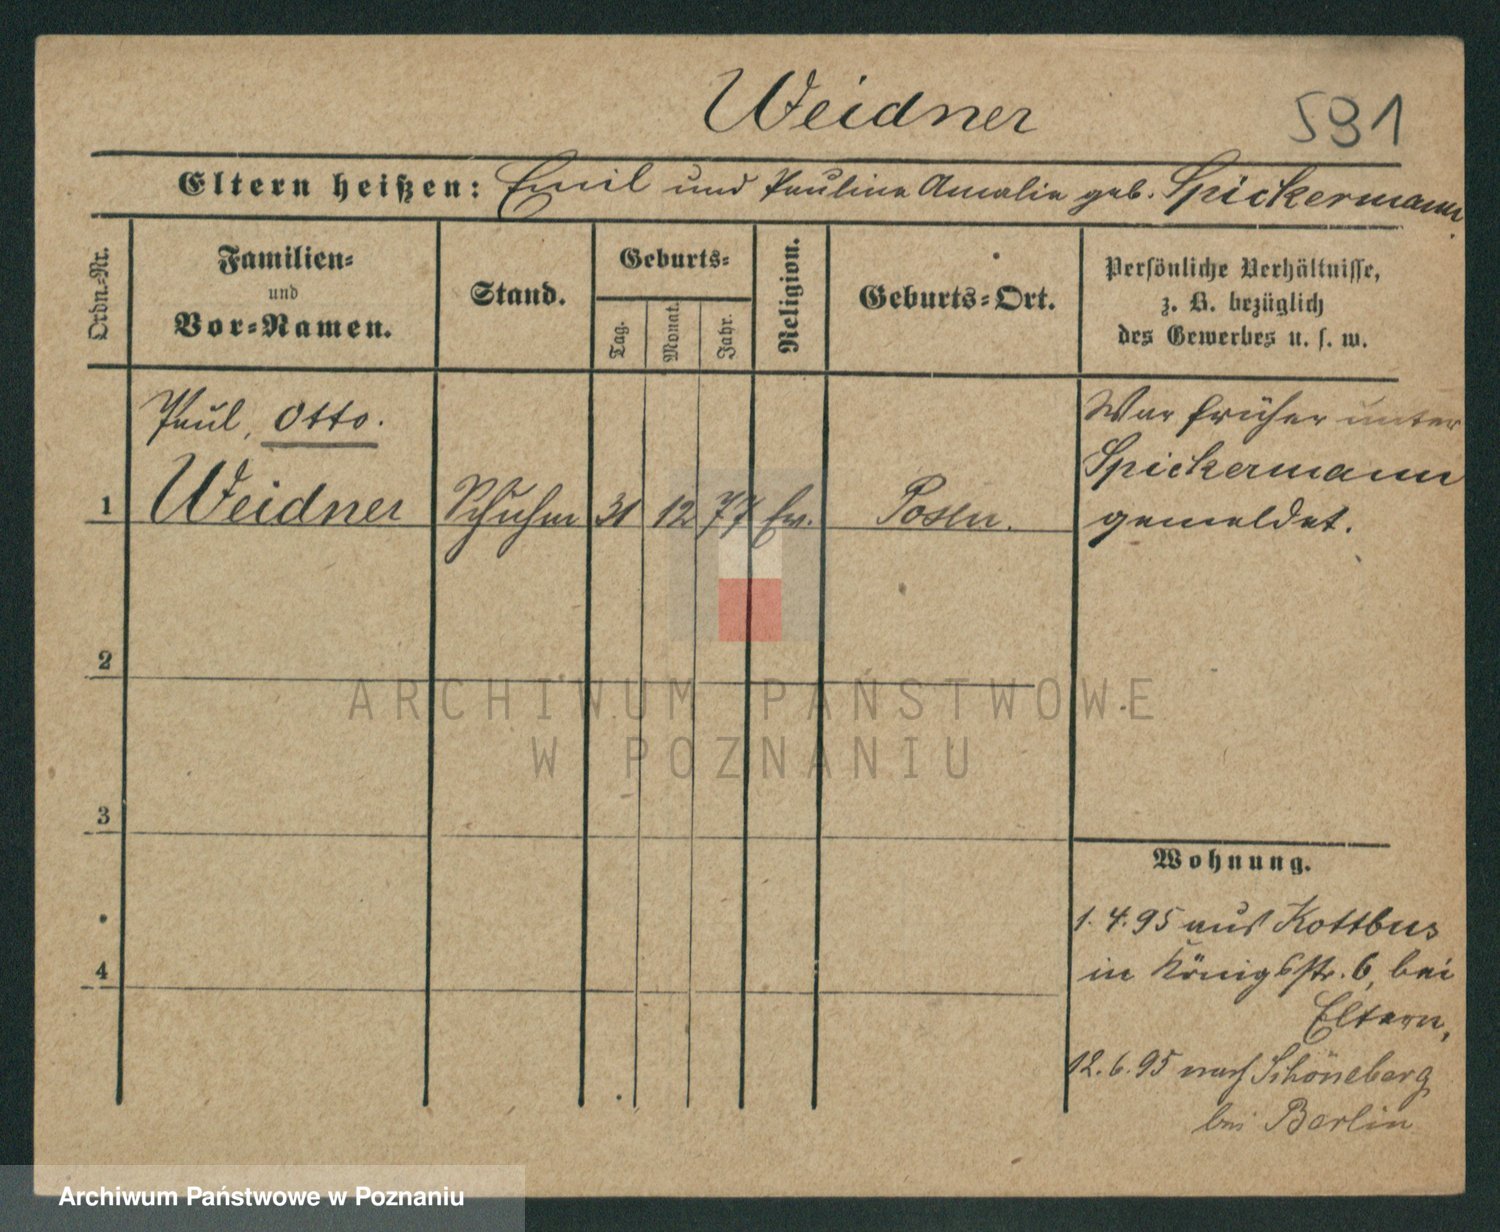 Weidner
591
Eltern heißen: Emil und Pauline Amalie geb. Spickermann.
Ordn.-Nr.
Familien-
und
Vor-Namen.
Stand.
Geburts-
Tag.
Monat.
Jahr.
Religion.
Geburts-Ort.
Persönliche Verhältnisse,
z. B. bezüglich
des Gewerbes u. s. w.
Paul, Otto.
1 Weidner Schuhm 31 12 77 Ev. Posen.
War früher unter
Spickermann
gemeldet.
2
3
4
Wohnung.
1. 4. 95 aus Kottbus
in Königsstr. 6, bei
Eltern,
12. 6. 95 nach Schöneberg
bei Berlin
ARCHIWUM PAŃSTWOWE
W POZNANIU
Archiwum Państwowe w Poznaniu